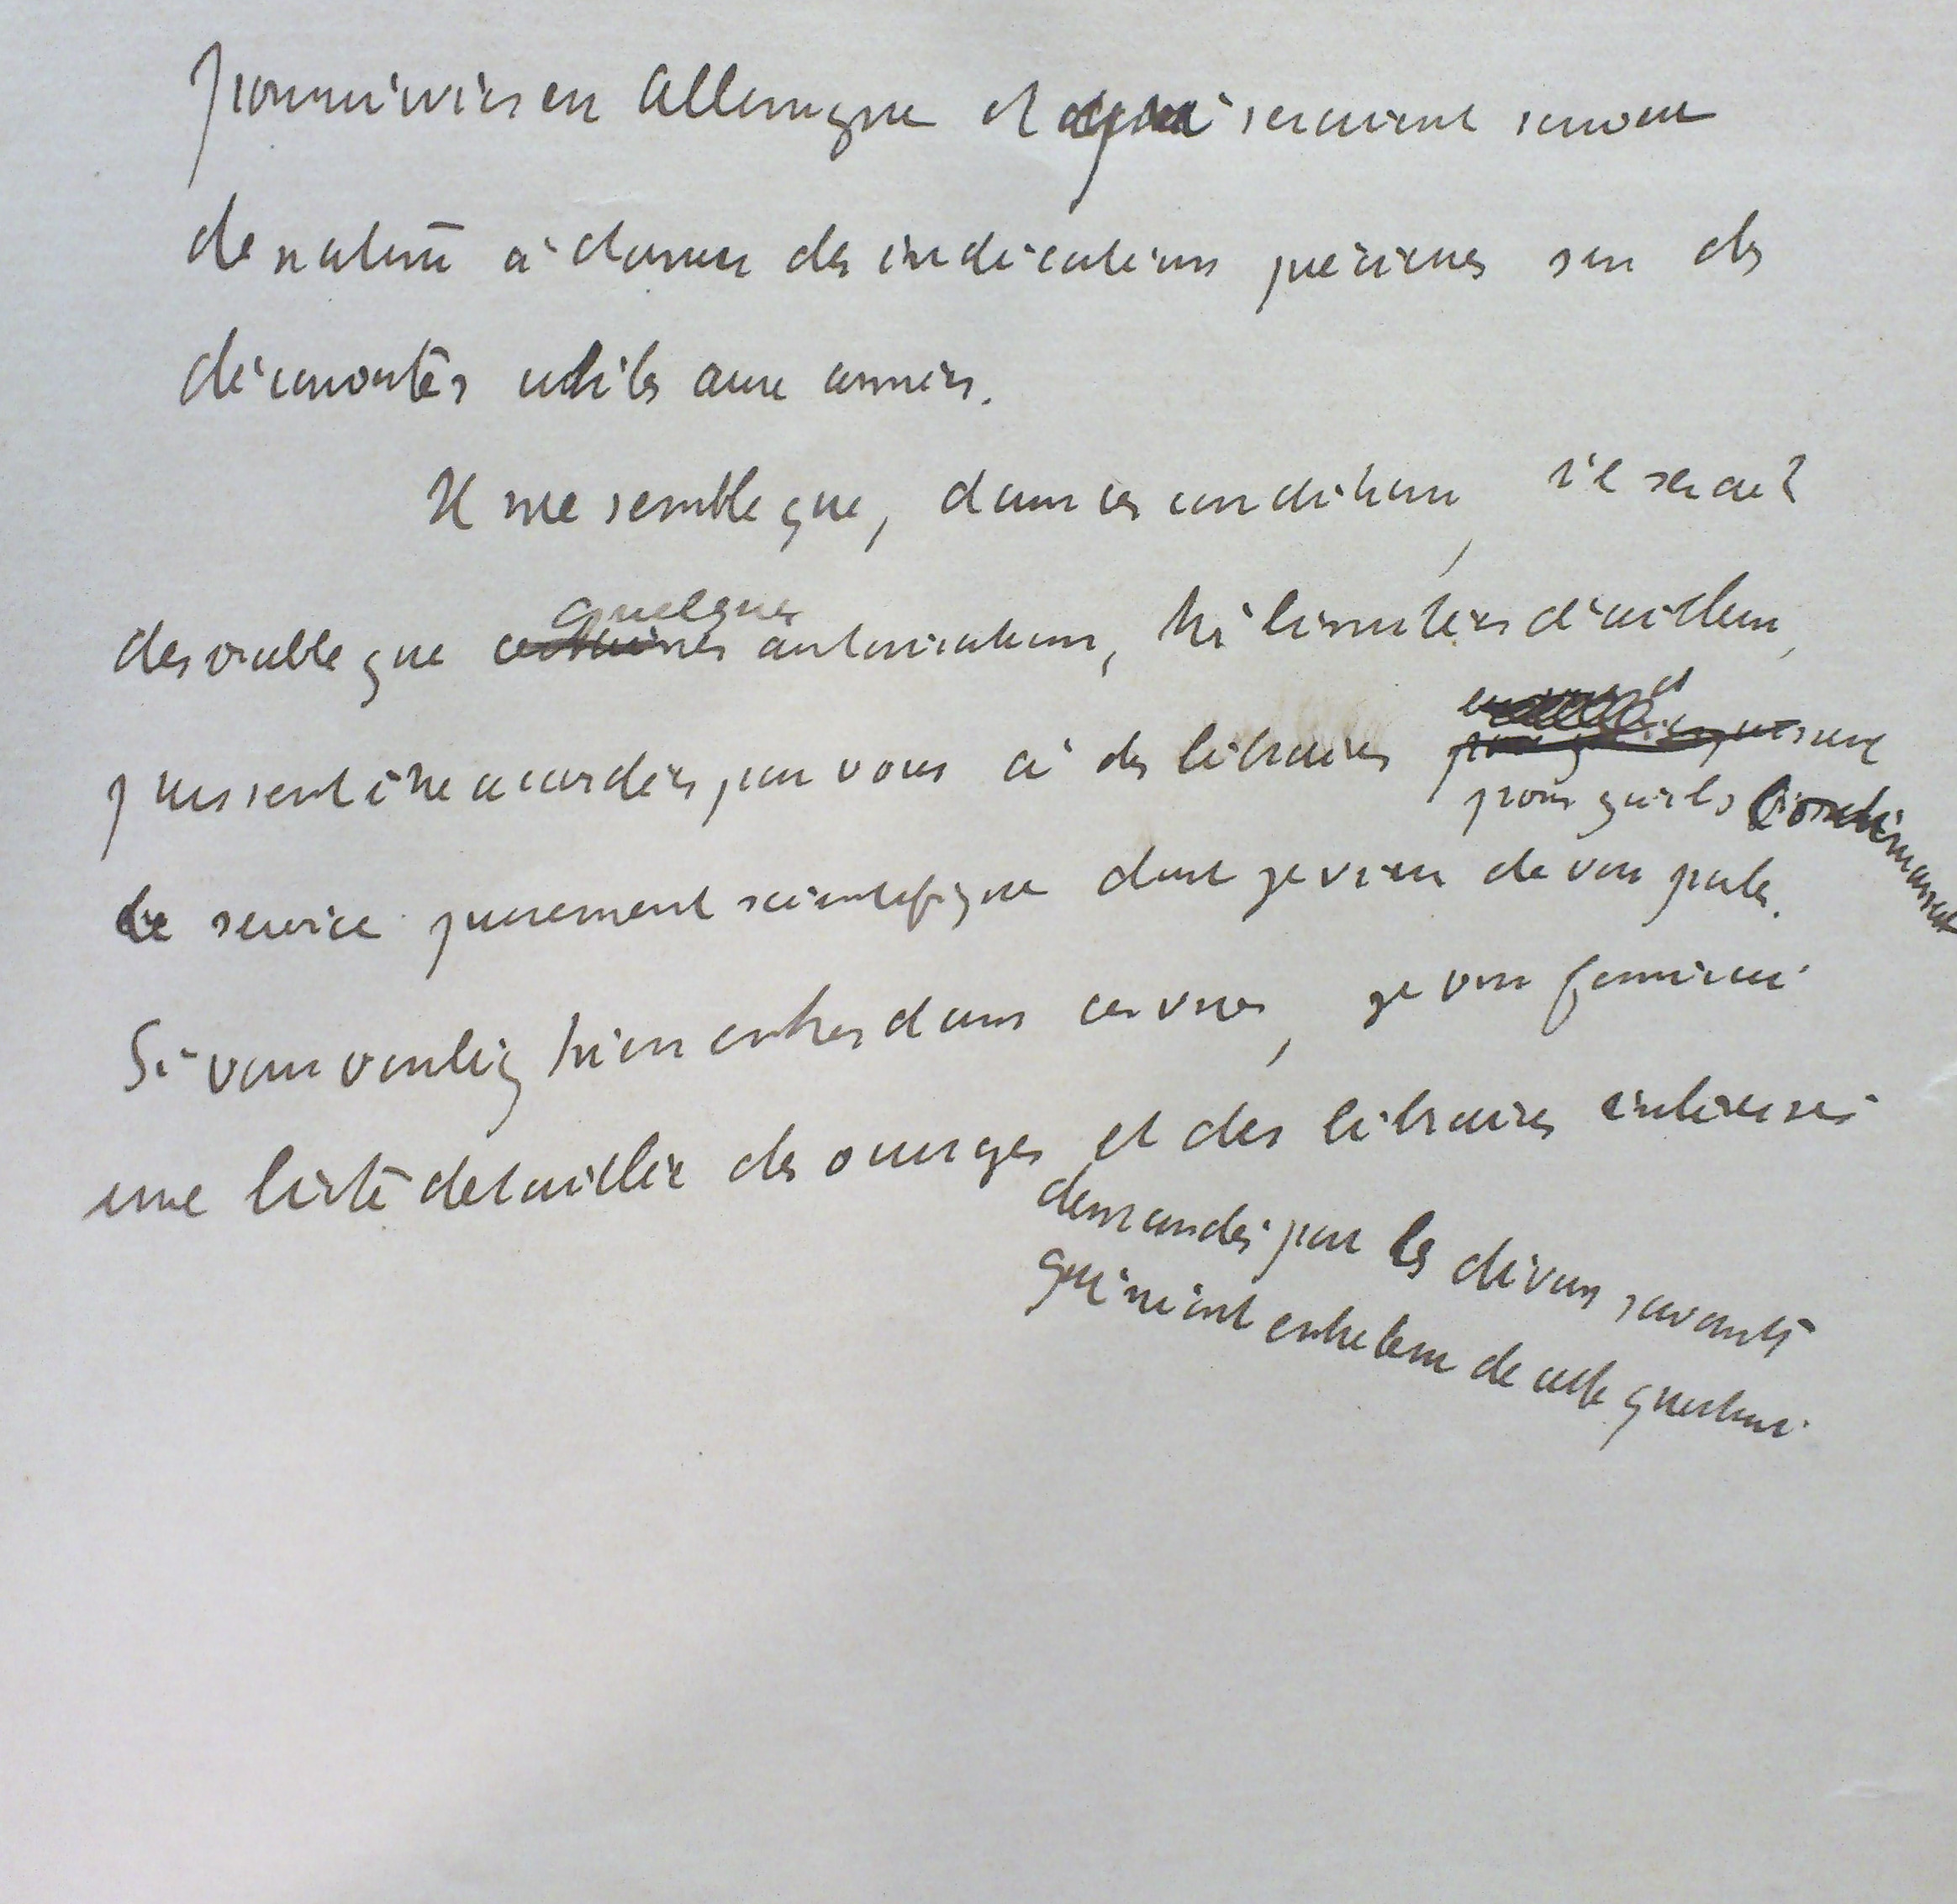 poursuivies en Allemagne et qui seraient souvent
de nature à donner des indications précieuses sur des
découvertes utiles aux armées.
Il me semble que, dans ces conditions, il serait
desirable que quelques autorisations, très limitées d'ailleurs,
pussent être accordées par vous à des libraires
pour qu'ils
le service purement scientifique dont je viens de vous parler.
Si vous vouliez bien entrer dans ces vues, je vous fournirai
une liste detaillée des ouvrages et des libraires intéressés
demandés par les divers savants
qui m'ont entretenu de cette question.